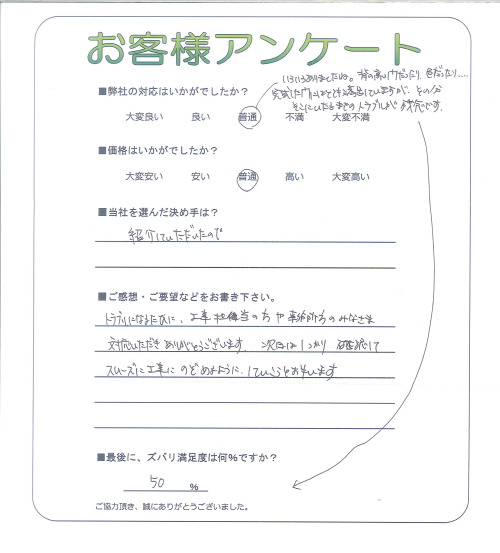 お客様アンケート
いろいろありましたね。 猫の高い穴だったり 色だったり....
完成した穴にはとても満足していますが、その分
そこにいたるまでのトラブルが 残念です。
■弊社の対応はいかがでしたか？
大変良い 良い 普通 不満 大変不満
■価格はいかがでしたか？
大変安い 安い 普通 高い 大変高い
■当社を選んだ決め手は？
紹介していただいたので
■ご感想・ご要望などをお書き下さい。
トラブルになるたびに、工事担当の方や事務所のみなさま
対応いただき ありがとうございます。 次回はしっかり 確認して
スムーズに工事に のぞめるように、していこうと思います
■最後に、ズバリ満足度は何%ですか？
50 %
ご協力頂き、誠にありがとうございました。